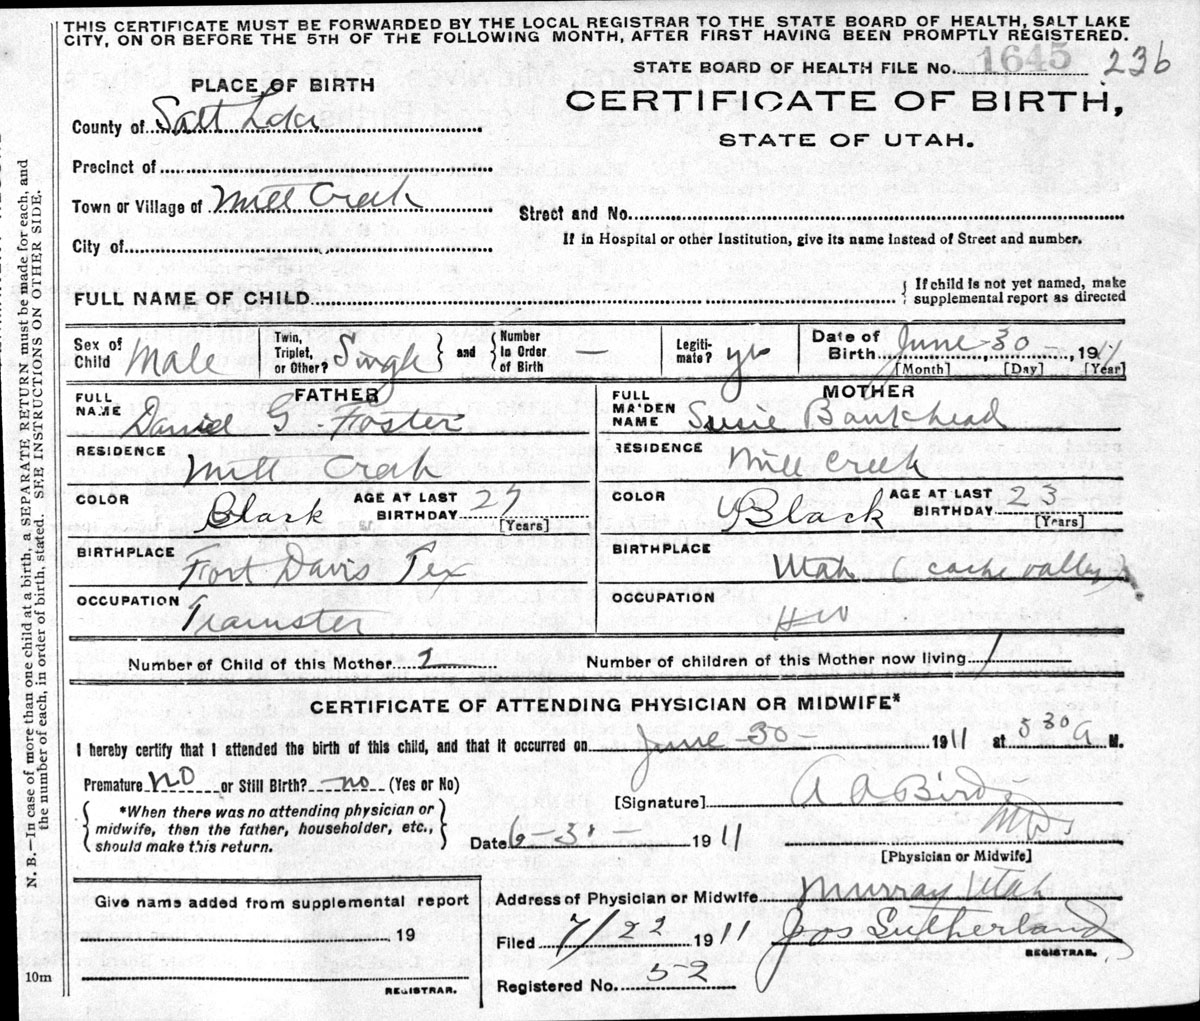 THIS CERTIFICATE MUST BE FORWARDED BY THE LOCAL REGISTRAR TO THE STATE BOARD OF HEALTH, SALT LAKE
CITY, ON OR BEFORE THE 5TH OF THE FOLLOWING MONTH, AFTER FIRST HAVING BEEN PROMPTLY REGISTERED.
STATE BOARD OF HEALTH FILE No. 1645 236
PLACE OF BIRTH
CERTIFICATE OF BIRTH,
STATE OF UTAH.
County of Salt Lake
Precinct of
Town or Village of Mill Creek
Street and No.
City of
If in Hospital or other Institution, give its name instead of Street and number.
FULL NAME OF CHILD
If child is not yet named, make
supplemental report as directed
Sex of Child Male
Twin, Triplet, or Other? Single
and
Number in Order of Birth —
Legiti-mate? yes
Date of Birth June 30, 1911
[Month] [Day] [Year]
FATHER
FULL NAME David G. Foster
RESIDENCE Mill Creek
COLOR Black
AGE AT LAST BIRTHDAY 27
[Years]
BIRTHPLACE Fort Davis Tex
OCCUPATION Teamster
MOTHER
FULL MAIDEN NAME Susie Bankhead
RESIDENCE Mill Creek
COLOR Black
AGE AT LAST BIRTHDAY 23
[Years]
BIRTHPLACE Utah (cache valley)
OCCUPATION HW
Number of Child of this Mother
Number of children of this Mother now living 1
CERTIFICATE OF ATTENDING PHYSICIAN OR MIDWIFE*
I hereby certify that I attended the birth of this child, and that it occurred on June-30- 1911 at 530 A M.
Premature NO or Still Birth? no (Yes or No)
*When there was no attending physician or
midwife, then the father, householder, etc.,
should make this return.
[Signature] A A Bird
MD
[Physician or Midwife]
Date 6-30- 1911
Give name added from supplemental report
19
REGISTRAR.
Address of Physician or Midwife Murray Utah
Filed 7/22 1911 Jos Sutherland
REGISTRAR.
Registered No. 52
10m
N. B.—In case of more than one child at a birth, a SEPARATE RETURN must be made for each, and
the number of each, in order of birth, stated. SEE INSTRUCTIONS ON OTHER SIDE.